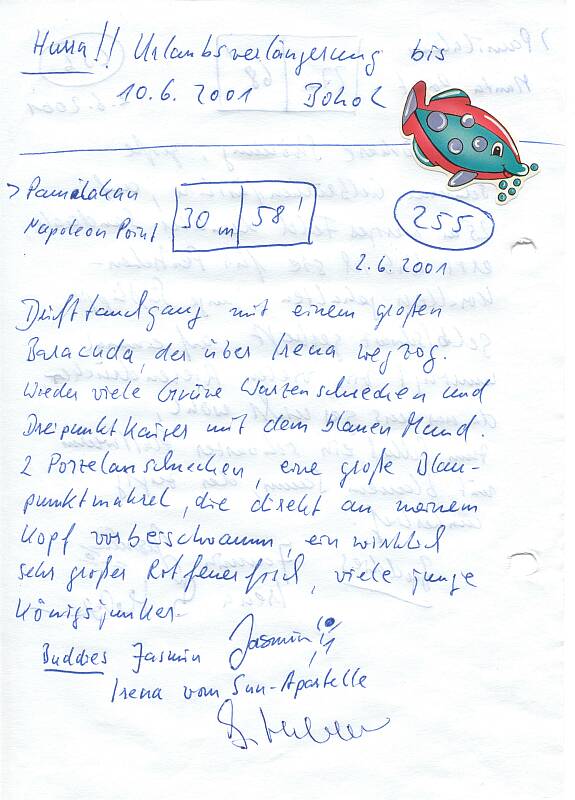 Hurra!! Urlaubsverlängerung bis
10.6.2001 Bohol
> Pamilakan
Napoleon Point
30 m 58'
255
2.6.2001
Drifttauchgang mit einem großen
Baracuda, der über Irena wegzog.
Wieder viele Grüne Warzenschnecken und
Dreipunktkaiser mit dem blauen Mund.
2 Porzelanschnecken, eine große Blau-
punktmakrel, die direkt an meinem
Kopf vorbeischwamm, ein wirklich
sehr großer Rotfeuerfisch, viele junge
Königsjunker.
Buddies Jasmin Jasmin
Irena vom Sun-Apostelle